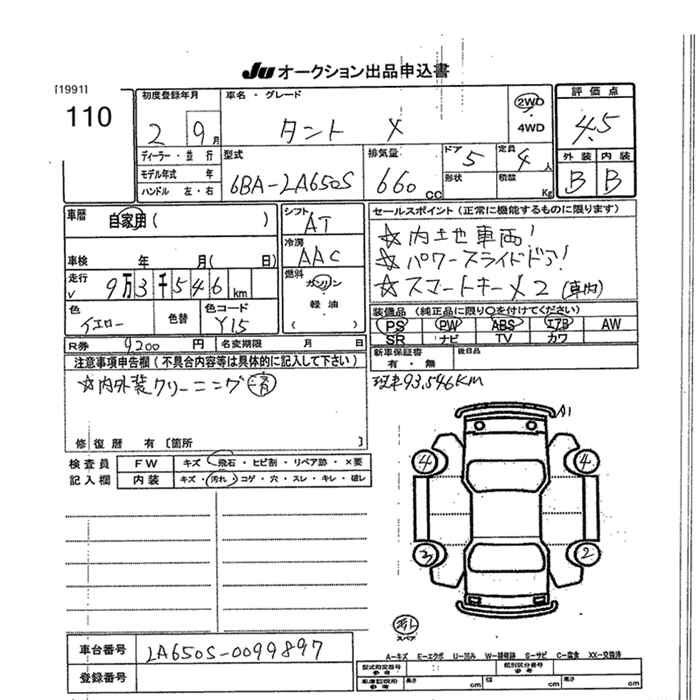 JU オークション出品申込書
[1991]
110
初度登録年月
2 9月
ディーラー・並行
モデル年式 年
ハンドル 左・右
車名・グレード
タント X
2WD
4WD
型式
6BA-LA650S
排気量
660 cc
ドア 5
形状
定員 4人
積数 Kg
評価点
4.5
外装 内装
B B
車歴
自家用( )
車検 年 月( 日)
走行
9万3千546 km
色
イエロー
色替
色コード
Y15
シフト
AT
冷房
AAC
燃料
ガソリン
・
軽油
( )
セールスポイント(正常に機能するものに限ります)
☆内土地車両!
☆パワースライドドア!
☆スマートキー×2(車内)
装備品(純正品に限り○を付けてください)
PS PW ABS エアB AW
SR ナビ TV カワ
新車保証書
有・無
後日品
R券 9200 円
名変期限 月 日
注意事項申告欄(不具合内容等は具体的に記入して下さい)
☆内外装クリーニング済
修復歴 有[箇所 ]
現車93,546KM
検査員
記入欄
FW キズ・飛石・ヒビ割・リペア跡・×要
内装 キズ・汚れ・コゲ・穴・スレ・キレ・破レ
A1
4 4
3 2
スペア
A―キズ E―エクボ U―凹み W―補修跡 S―サビ C―腐食 XX―交換済
車台番号 LA650S-0099897
登録番号
型式指定番号
参考
類別区分番号
参考
参考
長さ cm
幅 cm
高さ cm